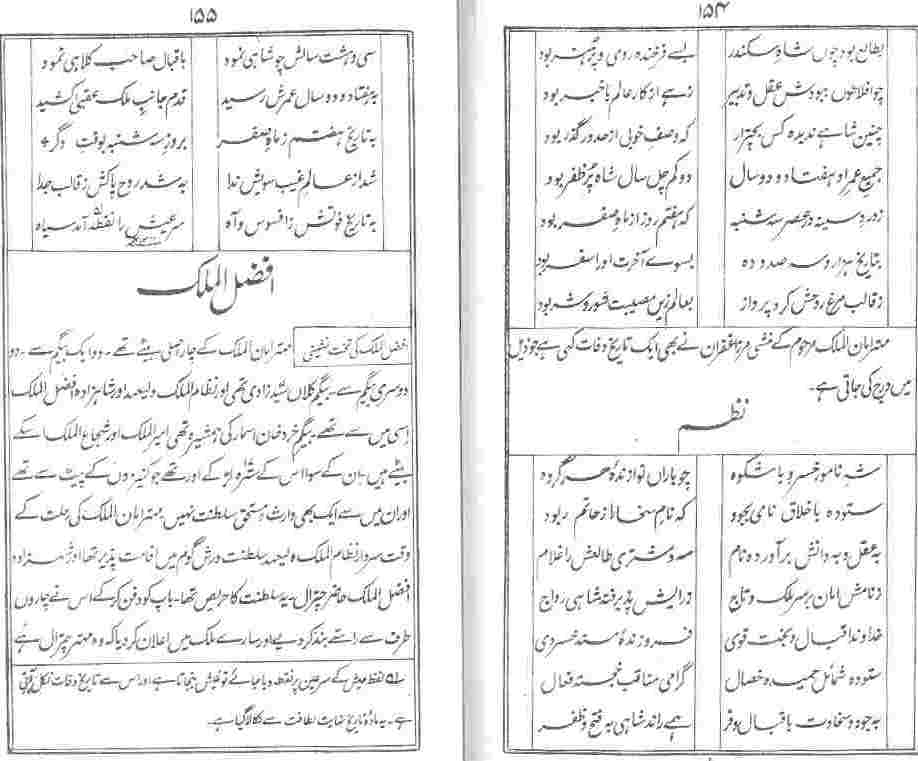 ۱۵۴
بطالع بود چوں شاہ سکندر بسے فرخندہ روی و پر ہنر بود
چو افلاطوں بودش عقل و تدبیر زہے از کار عالم باخبر بود
چنین شاہے ندیدہ کس بچترار که وصف خوبی از حد درگذر بود
جمیع عمر او ہفتاد و دو سال دو کم چل سال شاہ پر ظفر بود
در عصر سہ شنبہ که ہفتم روز از ماہ صفر بود
بتاریخ ہزار و سہ صد و دہ بسوے آخرت او را سفر بود
ز قالب مرغ روحش کرد پرواز بعالم زین مصیبت شور و شر بود
مہتر امان الملک مرحوم کے منشی مرزا غفران نے بھی ایک تاریخ وفات لکھی ہے جو ذیل
میں درج کی جاتی ہے۔
نظم
شہ نامور خسرو باشکوہ چو باراں نوازندۂ ہر گروہ
ستودہ باخلاق نامی بجود که نام سخا از حاتم ربود
به عقل و به دانش برآوردہ نام مہ و مشتری طالعش را غلام
و نامش امان بر سر ملک و تاج ز رایش پذیرفتہ شاہی رواج
خداوند اقبال و بخت قوی فروزندۂ مسند خسروی
ستودہ شمائل حمیدہ خصال گرامی مناقب خجستہ فعال
به جود و سخاوت باقبال و فر ہمے راند شاہی به فتح و ظفر
۱۵۵
سی و ہشت سالش چو شاہی نمود باقبال صاحب کلاہی نمود
به ہفتاد و دو سال عمرش رسید قدم جانب ملک عقبیٰ کشید
به تاریخ ہفتم ز ماہ صفر بروز سہ شنبہ بوقت دگر
شد از عالم غیب سویش ندا به شد روح پاکش ز قالب جدا
به تاریخ فوتش ز افسوس و آہ سر عیش را نقطہ آمد سیاہ
افضل الملک
افضل الملک کی تخت نشینی
مہتر امان الملک کے چار اصلی بیٹے تھے۔ دو ایک بیگم سے۔ دو
دوسری بیگم سے۔ بیگم کلاں سید زادی تھی اور نظام الملک ولیعہد اور شاہزادہ افضل الملک
اسی میں سے تھے۔ بیگم خرد خان اسمار کی ہمشیرہ تھی امیر الملک اور شجاع الملک اسکے
بیٹے ہیں۔ ان کے سوا اس کے سترہ لڑکے اور تھے جو کنیزوں کے پیٹ سے تھے
اور ان میں سے ایک بھی وارث و مستحق سلطنت نہیں۔ مہتر امان الملک کی رحلت کے
وقت سردار نظام الملک ولیعہد سلطنت ورشگوم میں اقامت پذیر تھا اور شہزادہ
افضل الملک حاضر چترال۔ یہ سلطنت کا حریص تھا۔ باپ کو دفن کر کے اس نے چاروں
طرف سے راستے بند کر دیے اور سارے ملک میں اعلان کر دیا کہ وہ مہتر چترال ہے
لہ لفظ عیش کے سر عین پر نقطہ دیا جائے تو غیش بنجاتا ہے اور اس سے تاریخ وفات نکل آتی
ہے۔ یہ مادۂ تاریخ نہایت لطافت سے نکالا گیا ہے۔